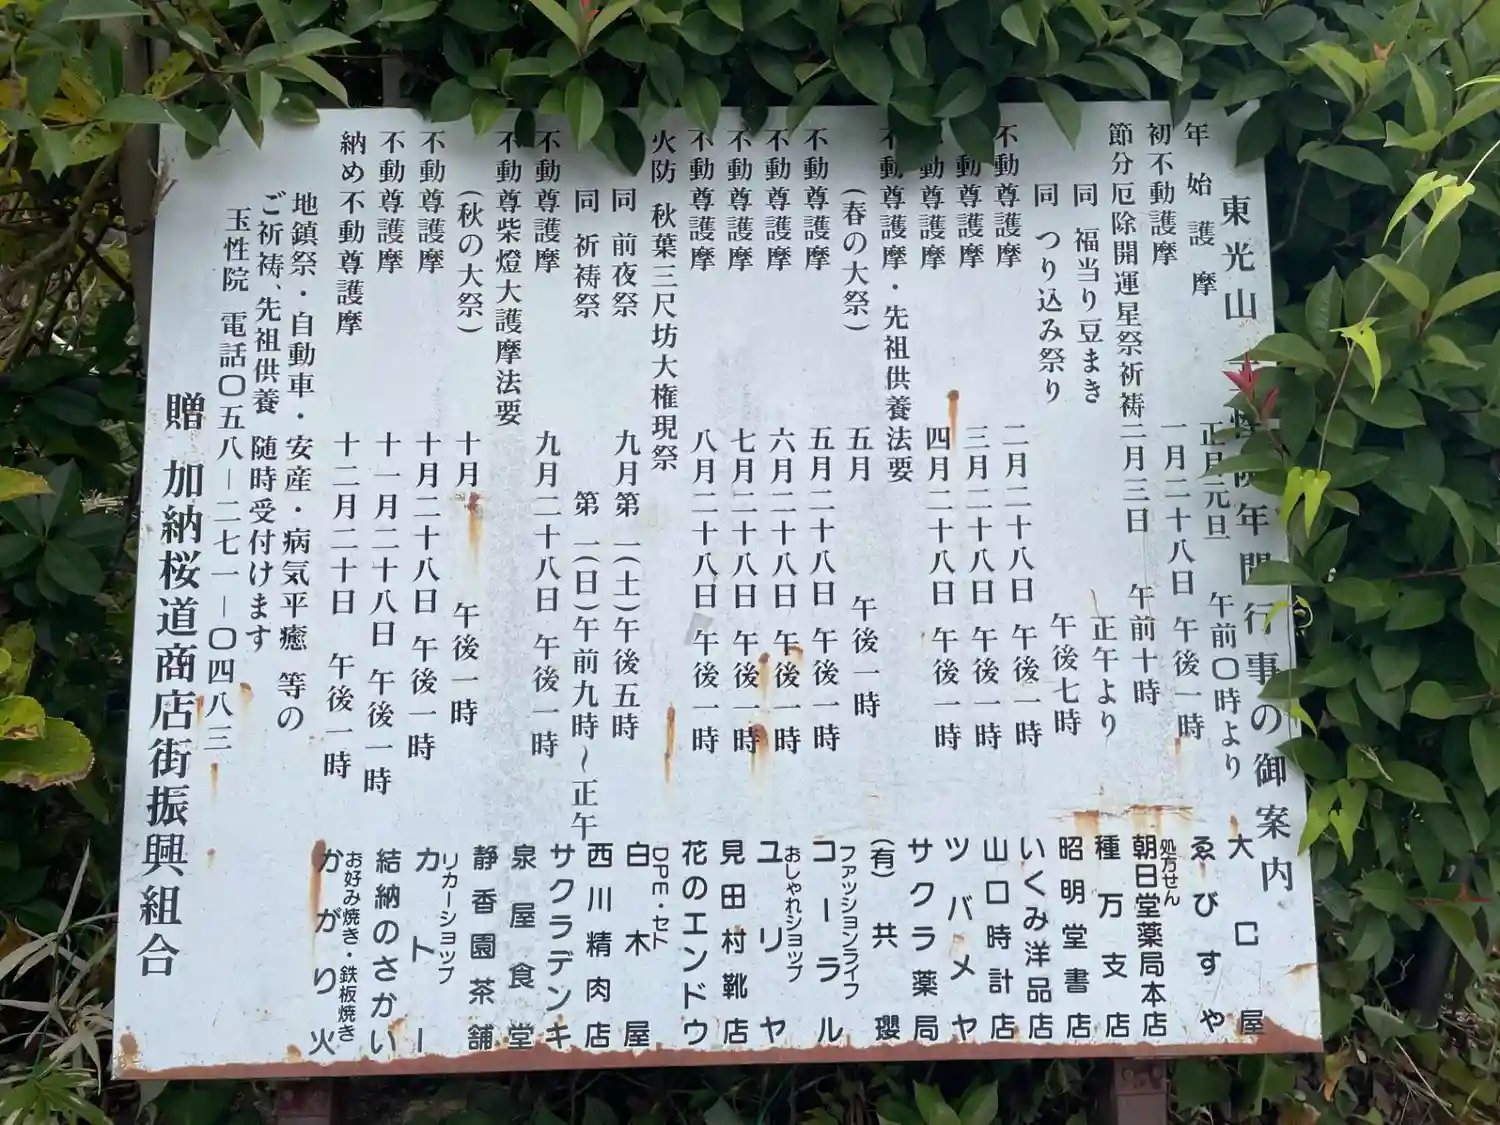 東光山 年間行事の御案内
年始護摩 正月元旦 午前〇時より
初不動護摩 一月二十八日 午後一時
節分厄除開運星祭祈祷 二月三日 午前十時
同 福当り豆まき 正午より
同 つり込み祭り 午後七時
不動尊護摩 二月二十八日 午後一時
動尊護摩 三月二十八日 午後一時
動尊護摩 四月二十八日 午後一時
不動尊護摩・先祖供養法要
(春の大祭) 五月 午後一時
不動尊護摩 五月二十八日 午後一時
不動尊護摩 六月二十八日 午後一時
不動尊護摩 七月二十八日 午後一時
不動尊護摩 八月二十八日 午後一時
火防 秋葉三尺坊大権現祭
同 前夜祭 九月第一(土)午後五時
同 祈祷祭 第一(日)午前九時～正午
不動尊護摩 九月二十八日 午後一時
不動尊柴燈大護摩法要
(秋の大祭) 十月 午後一時
不動尊護摩 十月二十八日 午後一時
不動尊護摩 十一月二十八日 午後一時
納め不動尊護摩 十二月二十日 午後一時
地鎮祭・自動車・安産・病気平癒 等の
ご祈祷、先祖供養 随時受付けます
玉性院 電話〇五八－二七一－〇四八三
贈 加納桜道商店街振興組合
大口屋
ゑびすや
処方せん
朝日堂薬局本店
種万支店
昭明堂書店
いくみ洋品店
山口時計店
ツバメヤ
サクラ薬局
(有)共瓔
ファッションライフ
コーラル
おしゃれショップ
ユリヤ
見田村靴店
花のエンドウ
DPE・セト
白木屋
西川精肉店
サクラデンキ
泉屋食堂
静香園茶舗
リカーショップ
カトー
結納のさかい
お好み焼き・鉄板焼き
かがり火